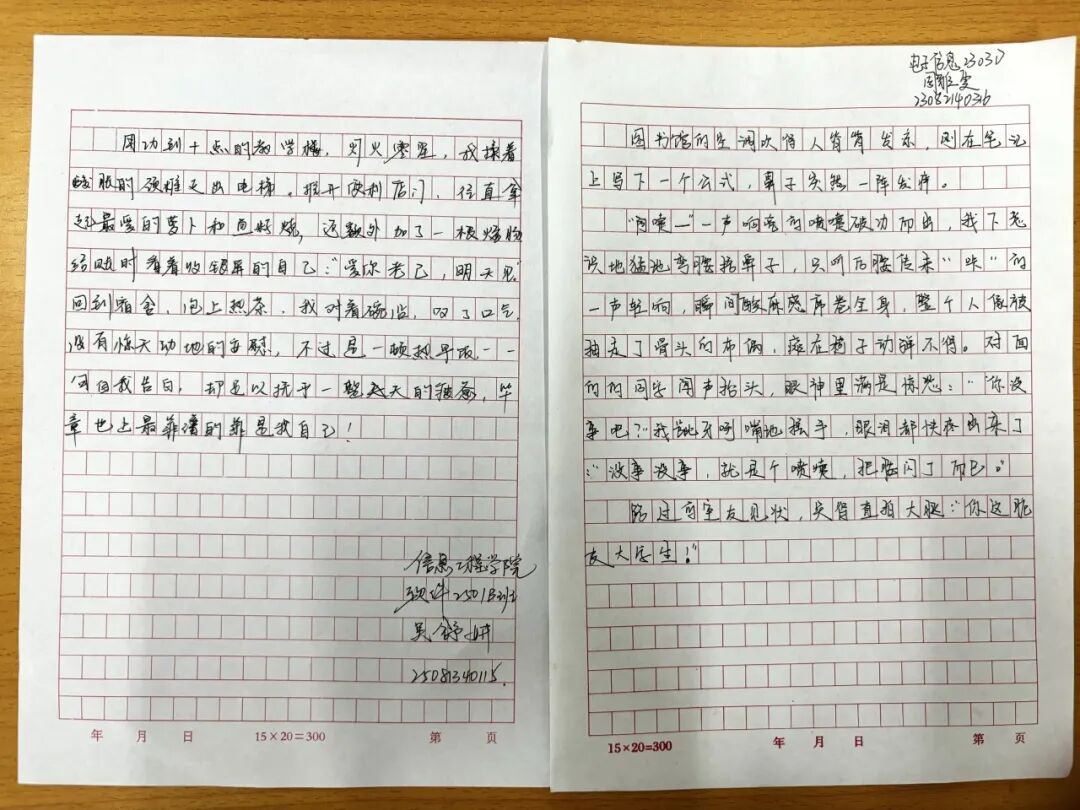 用功到十点的教学楼，灯火零星，我揉着
酸胀的颈椎走出电梯。推开便利店门，径直拿
起最爱的萝卜和鱼籽烧，还额外加了一根烤肠
结账时看着收银屏的自己："爱你老己，明天见"
回到宿舍，泡上热茶，我对着碗沿，叹了口气，
没有惊天动地的安慰，不过是一顿热早饭，一
句自我告白，却足以抚平一整天的疲惫，毕
竟世上最靠谱的靠是我自己！
信息工程学院
软件2501B班
吴 妍
25081340115.
年 月 日 15×20=300 第 页
电子信息2303D
23082140316
图书馆的空调吹得人背脊发凉，刚在笔记
上写下一个公式，鼻子突然一阵发痒。
"阿嚏—"一声响亮的喷嚏破功而出，我下意
识地猛地弯腰捂鼻子，只听后腰传来"咔"的
一声轻响，瞬间酸麻感席卷全身，整个人像被
抽走了骨头的布偶，瘫在椅子动弹不得。对面
的的同学闻声抬头，眼神里满是惊恐："你没
事吧？"我龇牙咧嘴地摆手，眼泪都快疼出来了
："没事没事，就是个喷嚏，把腰闪了而已。"
路过的室友见状，笑得直拍大腿："你这脆
皮大学生！"
15×20=300 年 月 日 第 页